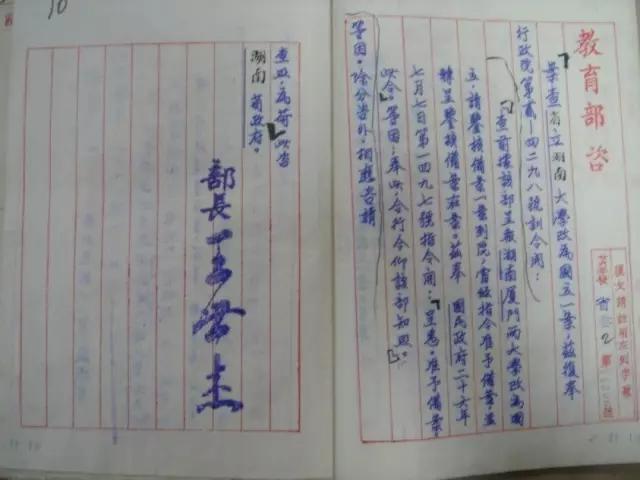 教育部咨
復文請註明左列字號
「案查省立湖南大學改為國立一案,茲復奉
行政院第貳-四二九八號訓令開:
「查前據該部呈報湖南廈門兩大學改為國
立,請鑒核備案一案到院,當經指令准予備案,並
轉呈鑒核備案在案。茲奉 國民政府二十六年
七月七日第一四九七號指令開:「呈悉。准予備案。
此令」等因;奉此,合行令仰該部知照。」
等因。除分咨外,相應咨請
查照,為荷」此咨
湖南省政府。
部長王世杰